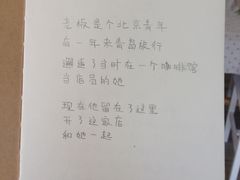 老板是个北京青年
有一年来青岛旅行
邂逅了当时在一个咖啡馆
当店员的她
现在他留在了这里
开了这家店
和她一起